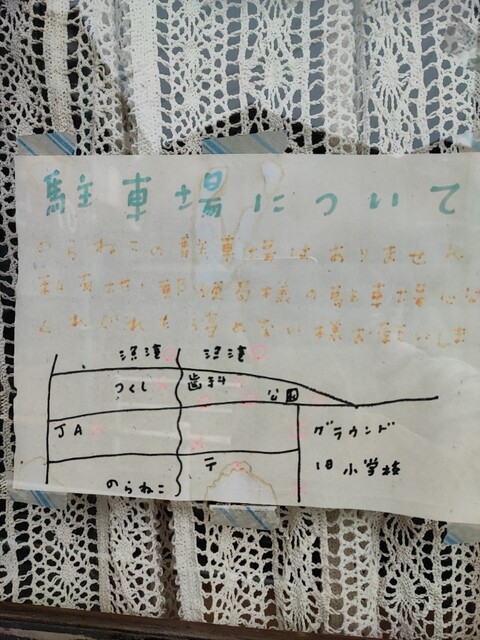 駐車場について
のらねこの駐車場はありません
郵便局様の駐車場には
くれぐれも停めない様お願いしま
つくし 歯科
公園
JA グラウンド
テ 旧小学校
のらねこ